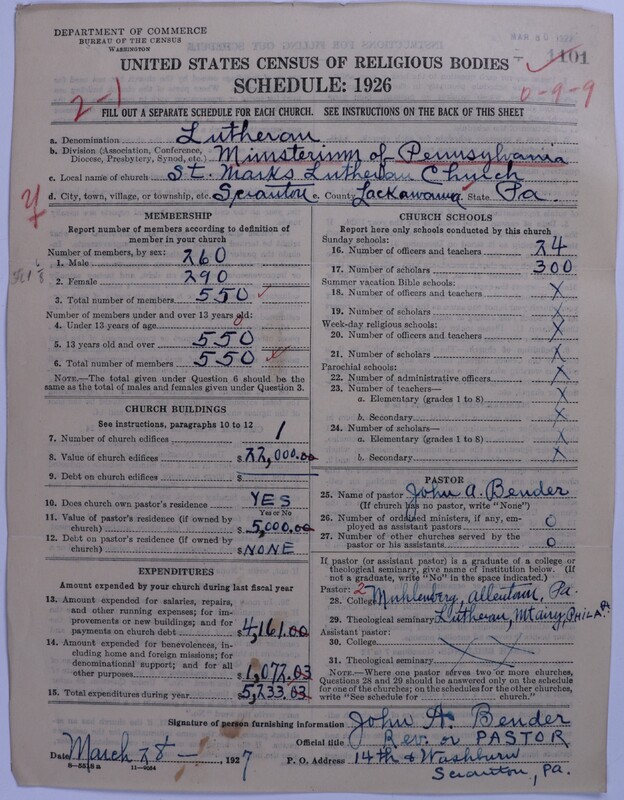 DEPARTMENT OF COMMERCE
BUREAU OF THE CENSUS
WASHINGTON
1101
UNITED STATES CENSUS OF RELIGIOUS BODIES
SCHEDULE: 1926
2-1
0-9-9
FILL OUT A SEPARATE SCHEDULE FOR EACH CHURCH. SEE INSTRUCTIONS ON THE BACK OF THIS SHEET
a. Denomination Lutheran
b. Division (Association, Conference, Diocese, Presbytery, Synod, etc.) Ministerium of Pennsylvania
c. Local name of church St. Marks Lutheran Church
d. City, town, village, or township, etc. Scranton e. County Lackawanna State Pa.
MEMBERSHIP
Report number of members according to definition of
member in your church
Number of members, by sex:
1. Male 260
2. Female 290
3. Total number of members 550
Number of members under and over 13 years old:
4. Under 13 years of age 0
5. 13 years old and over 550
6. Total number of members 550
NOTE.—The total given under Question 6 should be
the same as the total of males and females given under Question 3.
CHURCH BUILDINGS
See instructions, paragraphs 10 to 12
7. Number of church edifices 1
8. Value of church edifices $22,000.00
9. Debt on church edifices $
10. Does church own pastor's residence YES
Yes or No
11. Value of pastor's residence (if owned by
church) $5,000.00
12. Debt on pastor's residence (if owned by
church) $NONE
EXPENDITURES
Amount expended by your church during last fiscal year
13. Amount expended for salaries, repairs,
and other running expenses; for im-
provements or new buildings; and for
payments on church debt $4,161.00
14. Amount expended for benevolences, in-
cluding home and foreign missions; for
denominational support; and for all
other purposes $1,072.03
15. Total expenditures during year 5,233.03
CHURCH SCHOOLS
Report here only schools conducted by this church
Sunday schools:
16. Number of officers and teachers 24
17. Number of scholars 300
Summer vacation Bible schools:
18. Number of officers and teachers X
19. Number of scholars X
Week-day religious schools:
20. Number of officers and teachers X
21. Number of scholars X
Parochial schools:
22. Number of administrative officers X
23. Number of teachers—
a. Elementary (grades 1 to 8) X
b. Secondary X
24. Number of scholars—
a. Elementary (grades 1 to 8) X
b. Secondary X
PASTOR
25. Name of pastor John A. Bender
(If church has no pastor, write "None")
26. Number of ordained ministers, if any, em-
ployed as assistant pastors 0
27. Number of other churches served by the
pastor or his assistants 0
If pastor (or assistant pastor) is a graduate of a college or
theological seminary, give name of institution below. (If
not a graduate, write "No" in the space indicated.)
Pastor: 2
28. College Muhlenberg, Allentown, Pa.
29. Theological seminary Lutheran, Mt airy, PHILA Pa
Assistant pastor:
30. College X
31. Theological seminary X
NOTE.—Where one pastor serves two or more churches,
Questions 28 and 29 should be answered only on the schedule
for one of the churches; on the schedules for the other churches,
write "See schedule for church."
Signature of person furnishing information John A. Bender
Official title Rev. or PASTOR
Date March 28, 1927 P. O. Address 14th & Washburn
Scranton, Pa.
8-5518a 11-9084